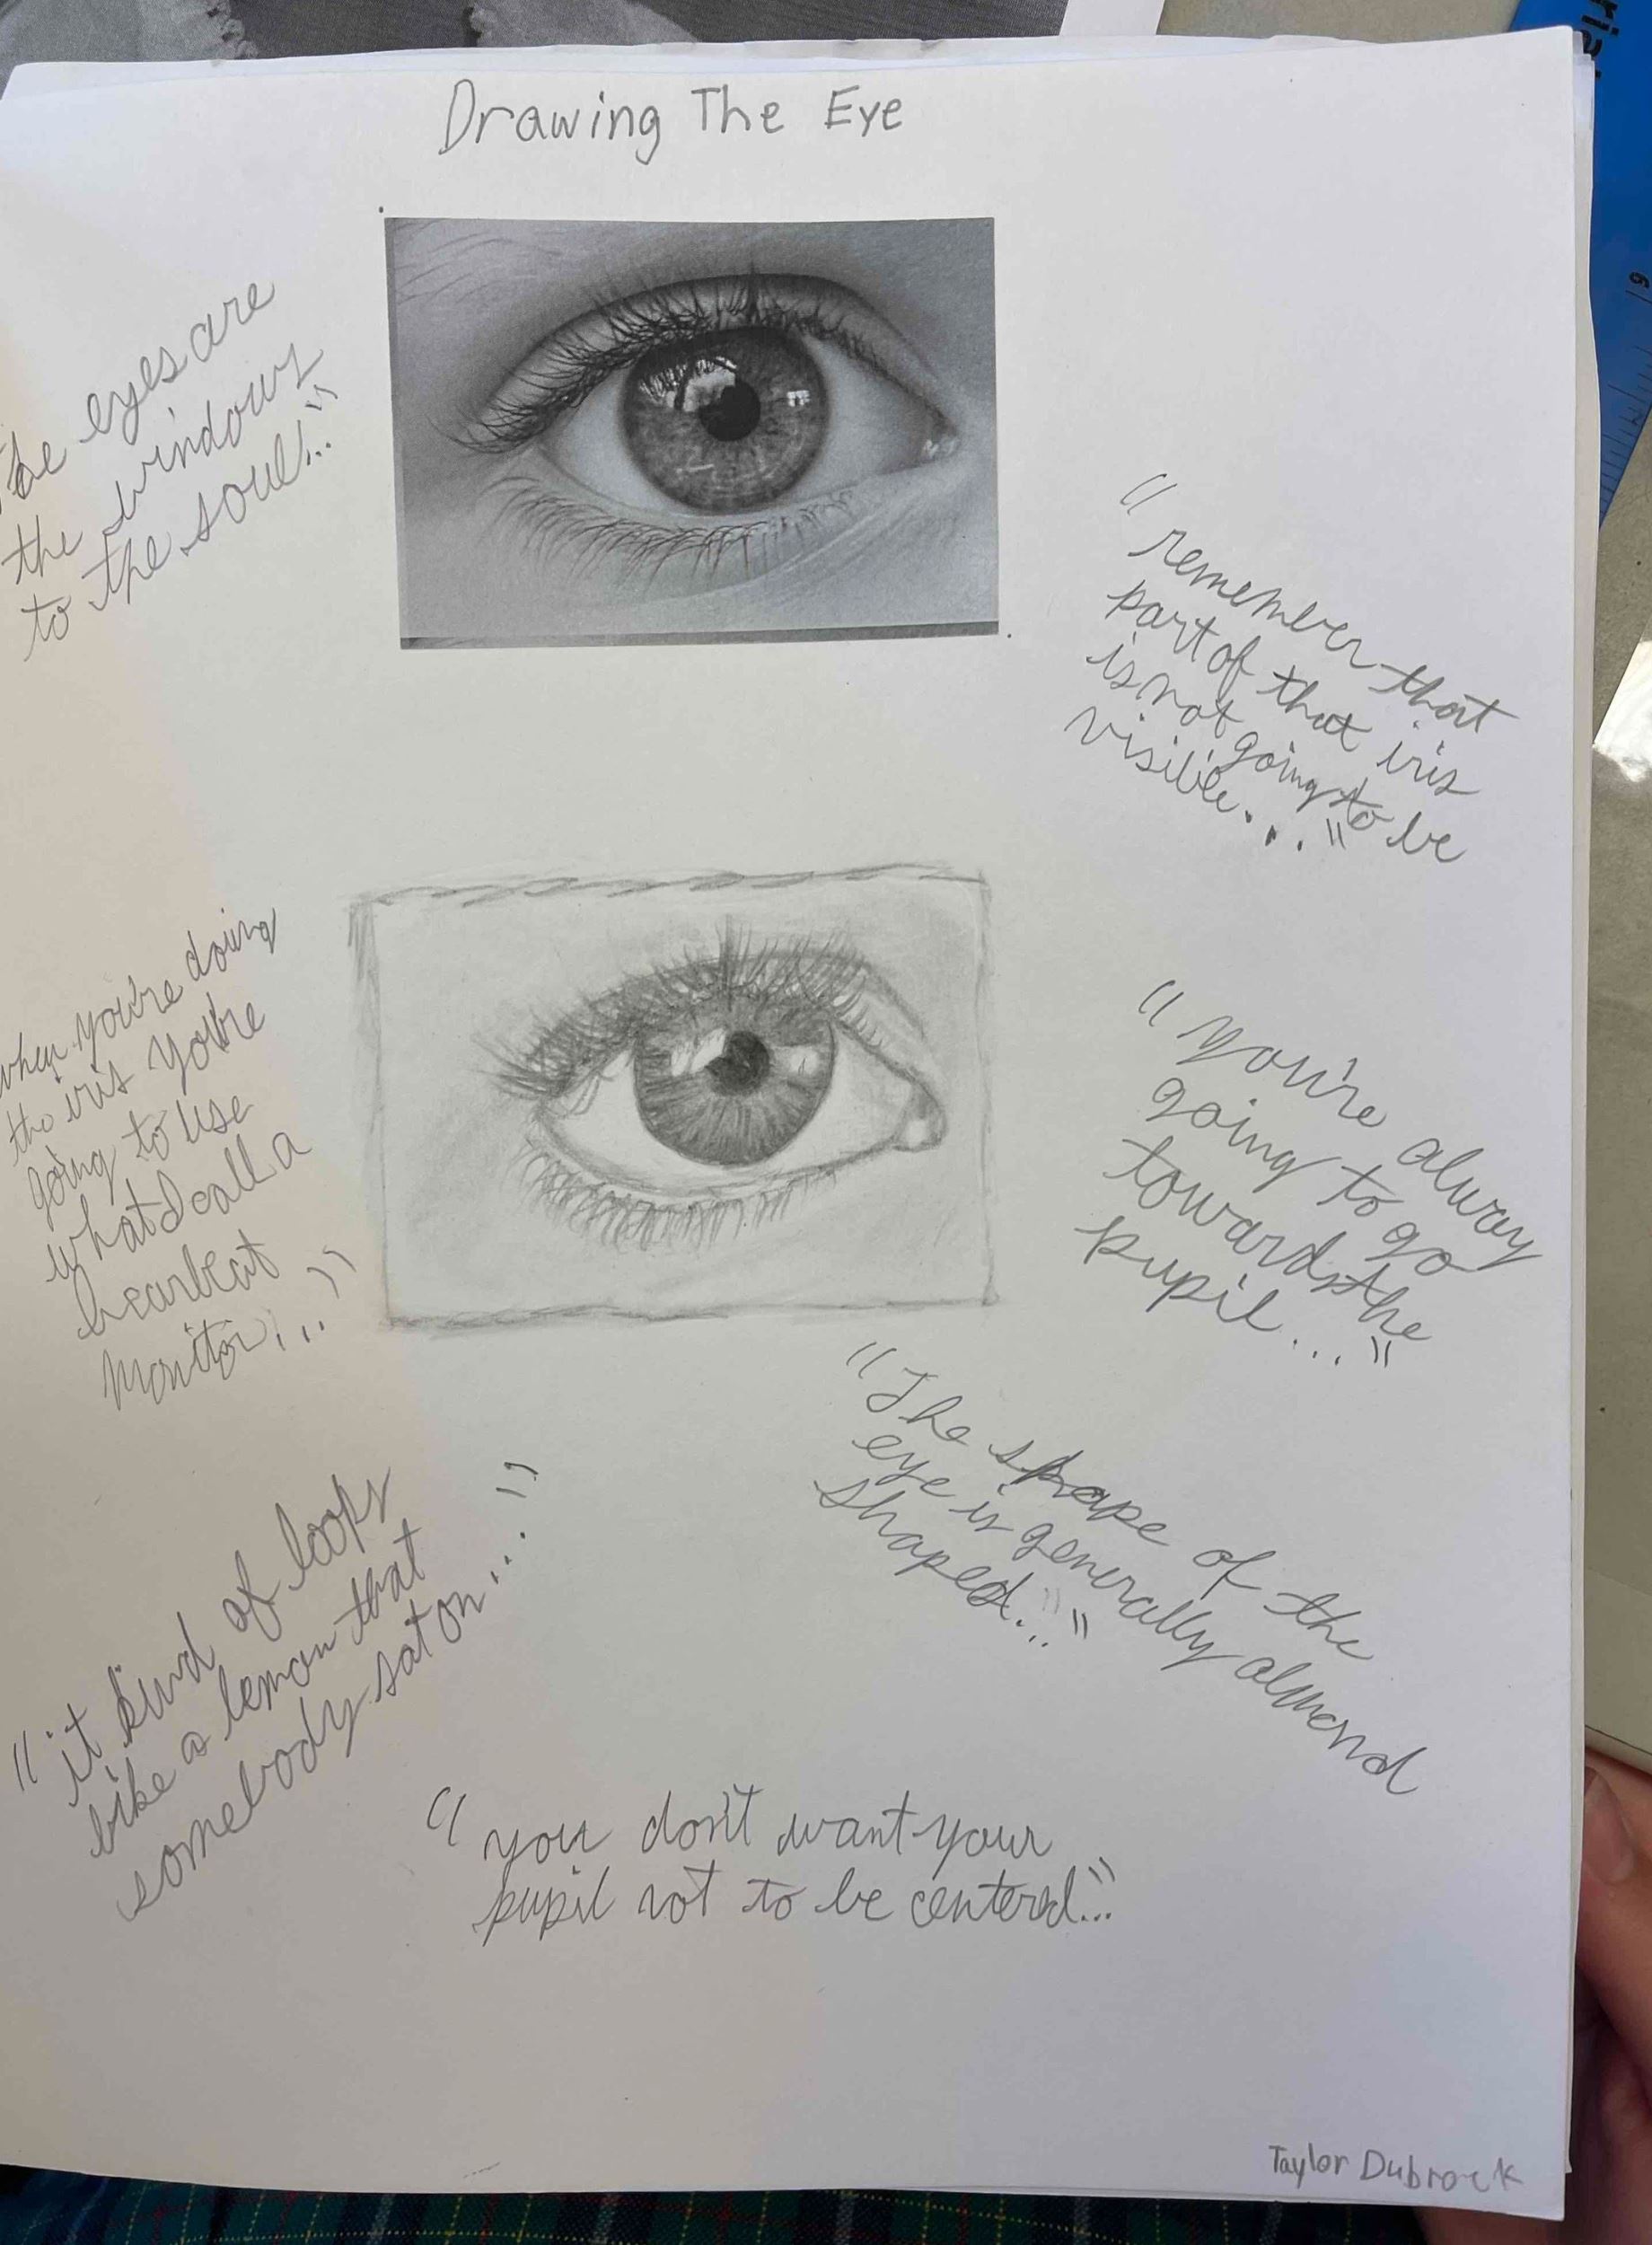 Drawing The Eye
the eyes are
the windows
to the soul..."
"remember that
part of that iris
is not going to be
visible..."
when you're doing
the iris you're
going to use
what I call a
hearbeat
monitor..."
"you're alway
going to go
towards the
pupil..."
"The shape of the
eye is generally almond
shaped..."
"it kind of loops
like a lemon that
somebody sat on..."
"you don't want your
pupil not to be centered..."
Taylor Dubrock
6